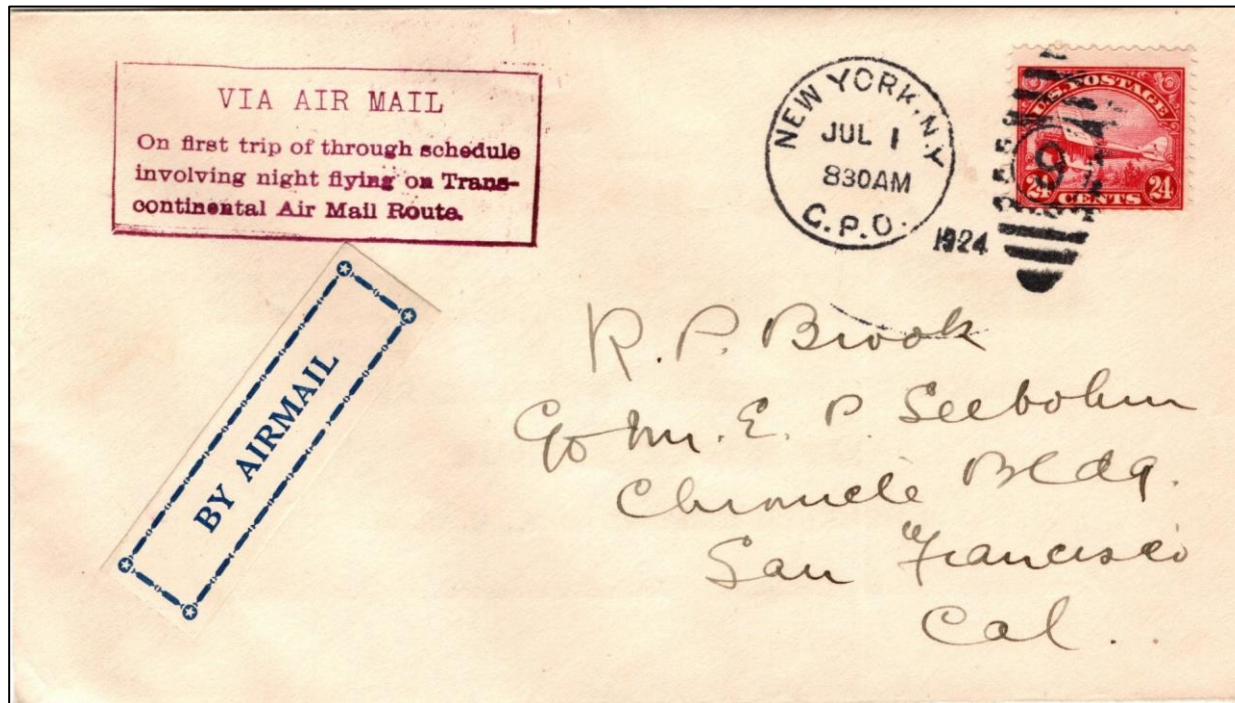 VIA AIR MAIL
On first trip of through schedule
involving night flying on Trans-
continental Air Mail Route.
NEW YORK, N.Y.
JUL 1
830AM
G.P.O.
1924
U.S. POSTAGE
9
24 CENTS 24
BY AIRMAIL
R. P. Brook
c/o Mr. E. P. Seebohm
Chronicle Bldg.
San Francisco
Cal..